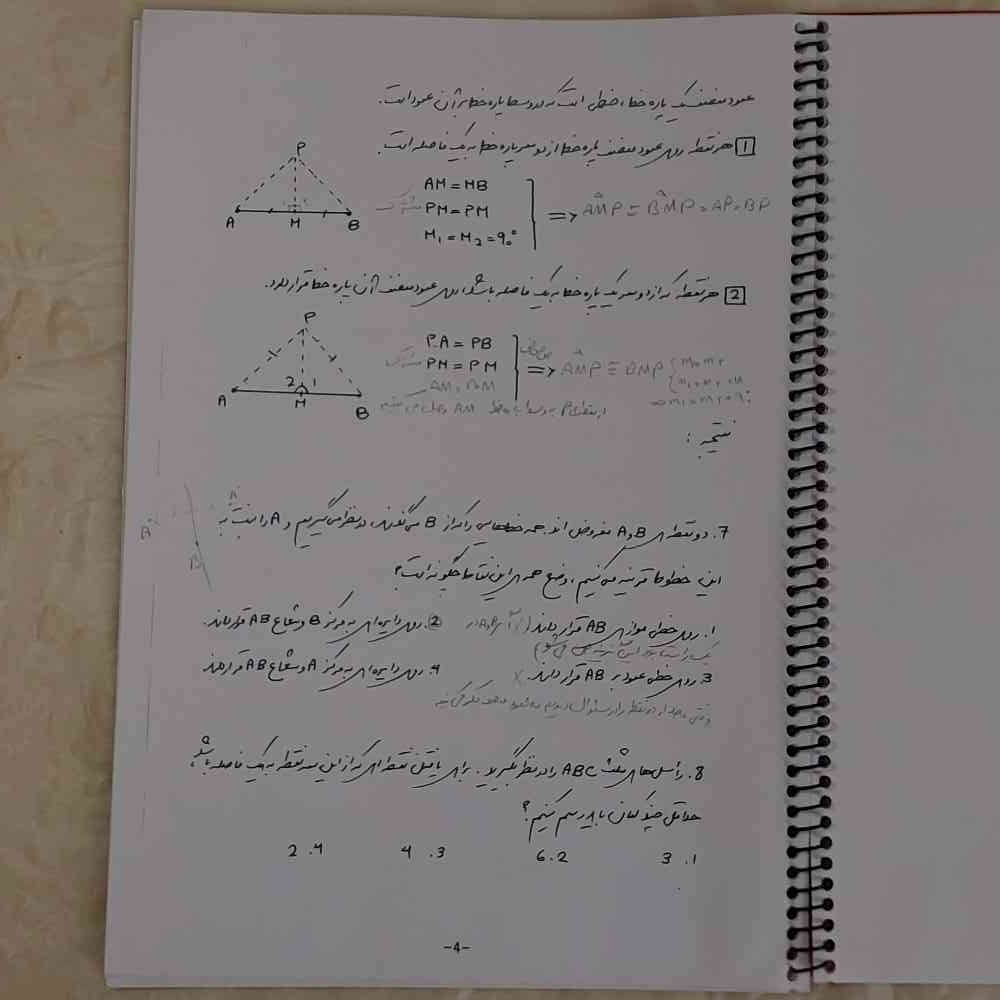 عمود منصف یک پاره خط، خطی است که در وسط پاره خط بر آن عمود است.
1 هر نقطه روی عمود منصف پاره خط از دو سر پاره خط به یک فاصله است.
P
A M B
AM = MB
PM = PM مشترک
M₁ = M₂ = 90°
=> AMP ≅ BMP => AP = BP
2 هر نقطه که از دو سر یک پاره خط به یک فاصله باشد، روی عمود منصف آن پاره خط قرار دارد.
P
2 1
A M B
PA = PB
PM = PM مشترک
AM = BM
=> AMP ≅ BMP
از نقطه P به وسط پاره خط AM وصل می کنیم
نتیجه :
7. دو نقطه ی A و B مفروض اند. همه خط هایی را که از B می گذرند، در نظر می گیریم و A را نسبت به
این خطوط قرینه می کنیم، وضع همه ی این نقاط چگونه است؟
A
B
1. روی خطی موازی AB قرار دارند
2. روی دایره ای به مرکز B و شعاع AB قرار دارند.
3. روی خط عمود بر AB قرار دارند. x
4. روی دایره ای به مرکز A و شعاع AB قرار دارند
8. رأس های مثلث ABC را در نظر بگیرید. برای یافتن نقطه ای که از این سه نقطه به یک فاصله باشد،
حداقل چند کمان باید رسم کنیم؟
1. 3 2. 6 3. 4 4. 2
-4-